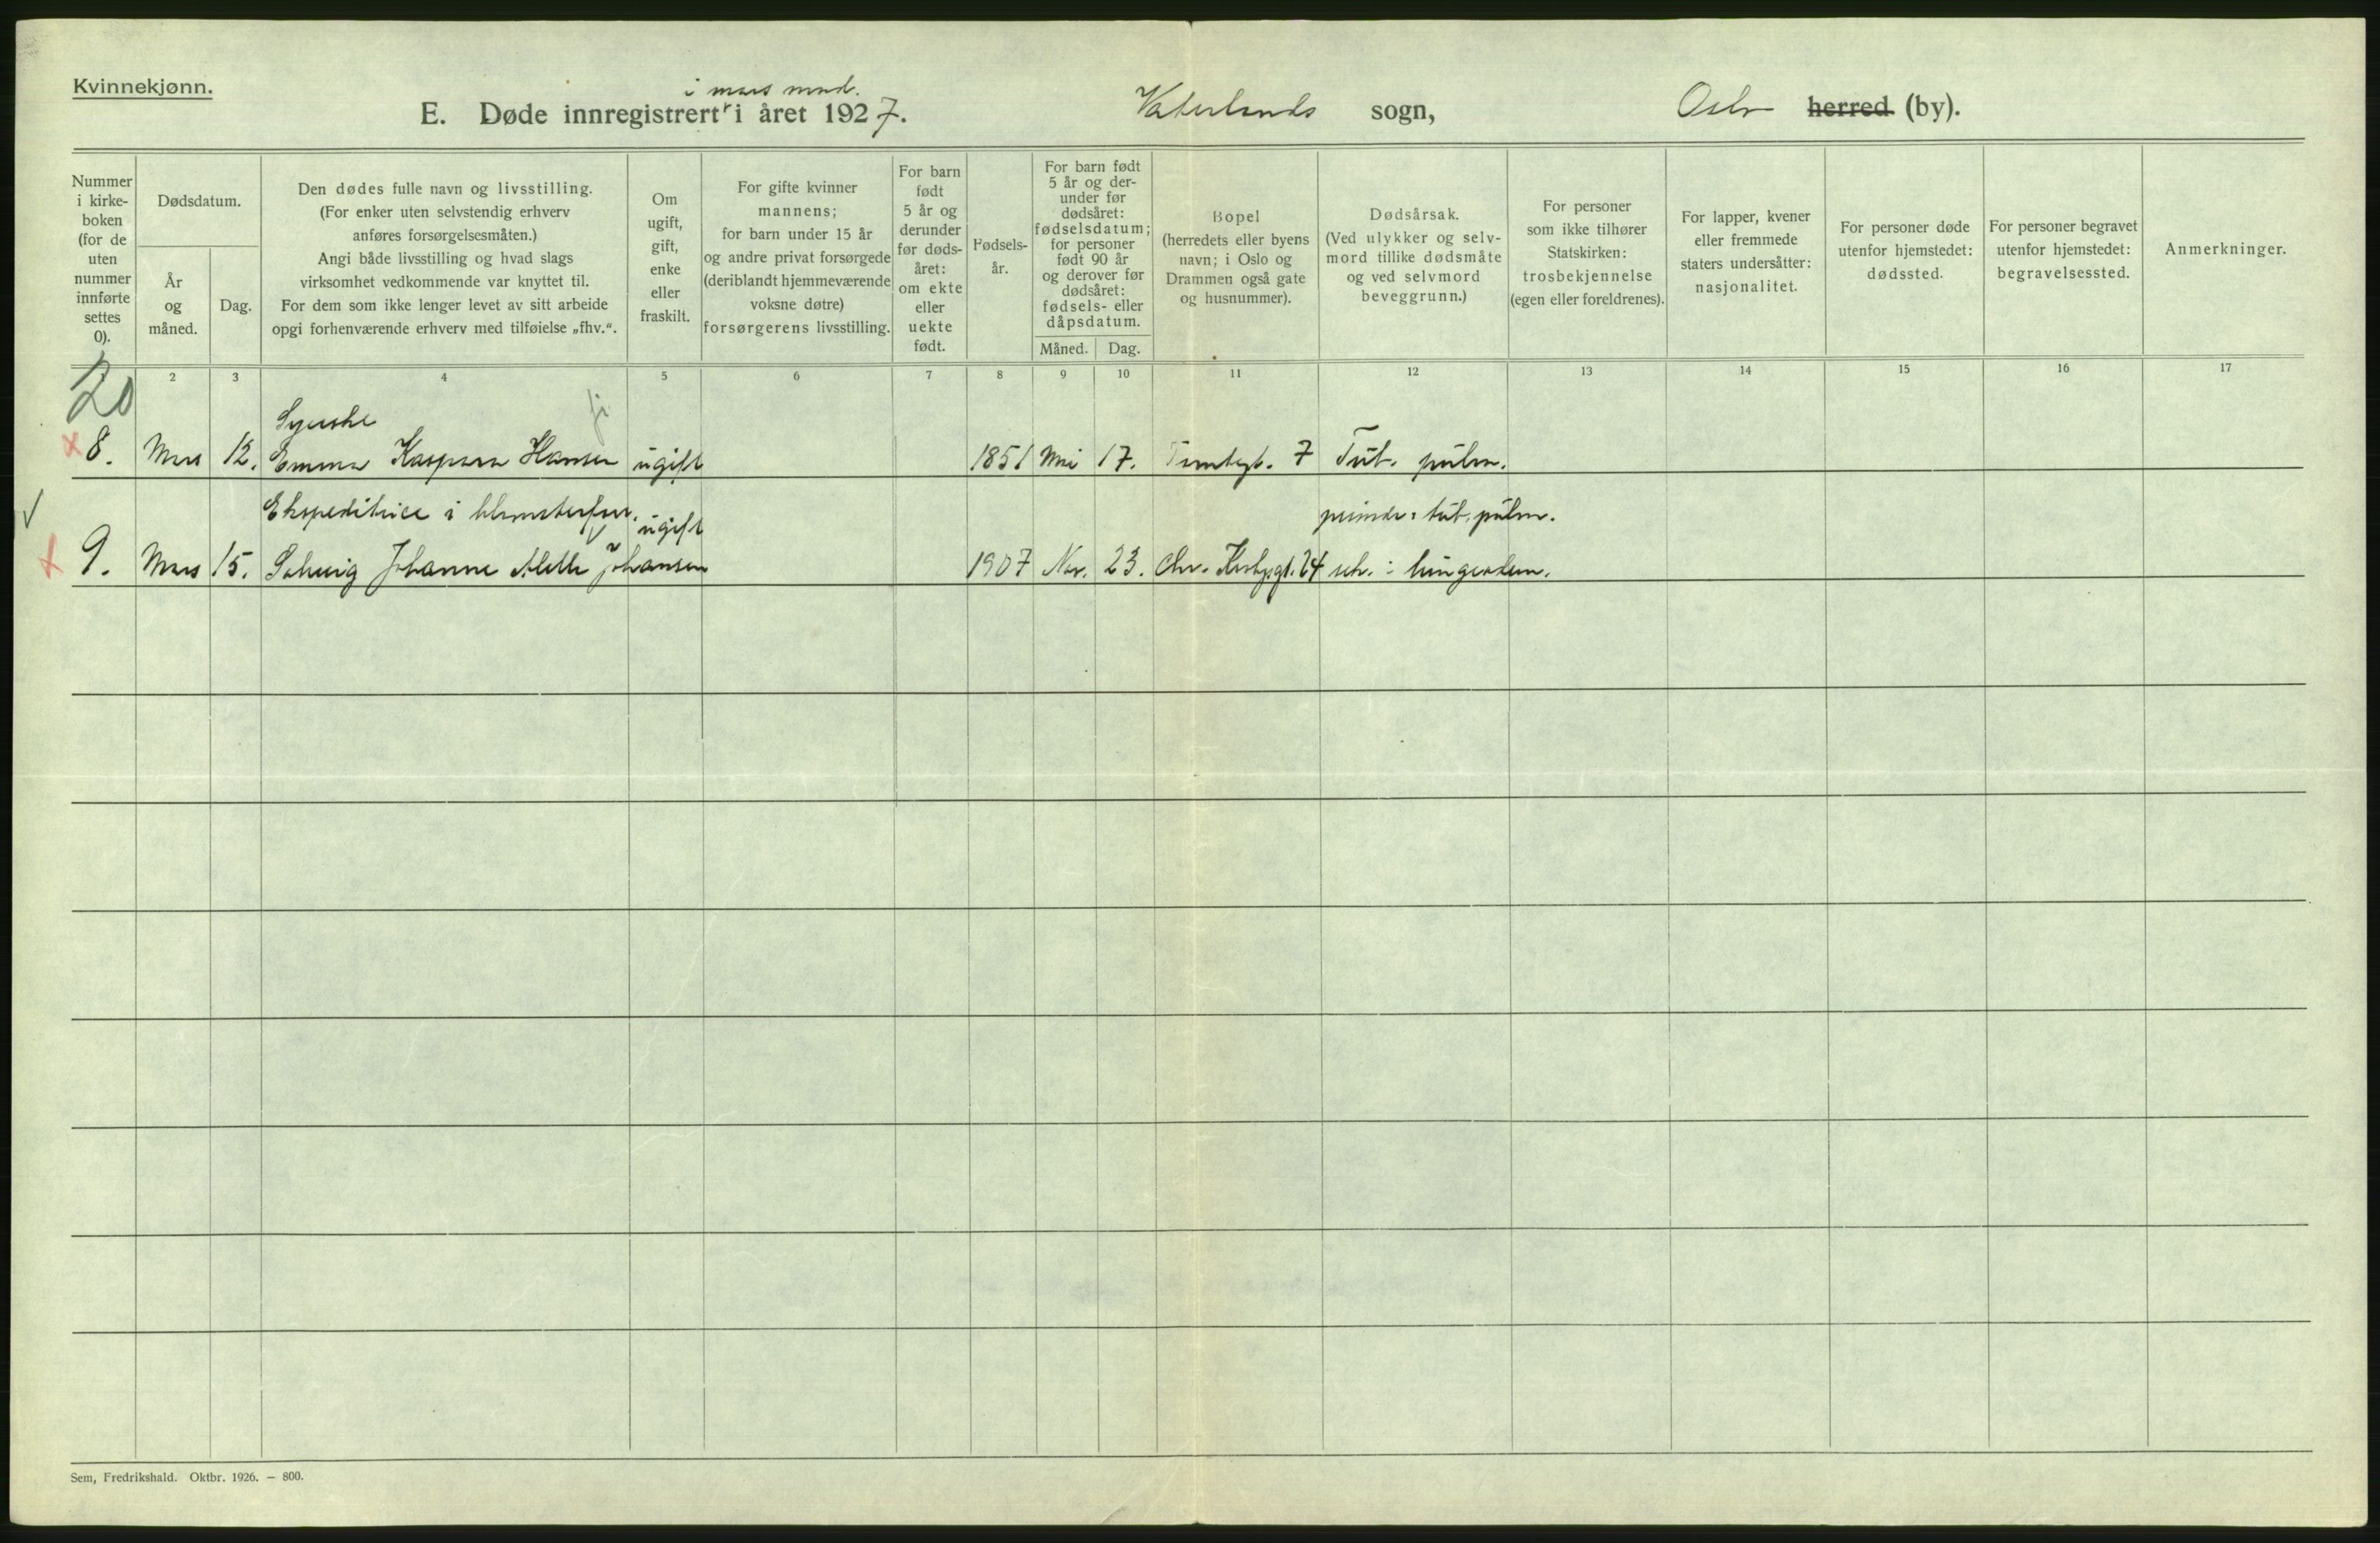 Kvinnekjønn.
i mars mnd.
E. Døde innregistrert i året 1927.
Vaterlands sogn,
Oslo herred (by).
Nummer i kirke-boken (for de uten nummer innførte settes 0).
Dødsdatum.
År og måned.
Dag.
Den dødes fulle navn og livsstilling.
(For enker uten selvstendig erhverv
anføres forsørgelsesmåten.)
Angi både livsstilling og hvad slags
virksomhet vedkommende var knyttet til.
For dem som ikke lenger levet av sitt arbeide
opgi forhenværende erhverv med tilføielse „fhv.“.
Om ugift, gift, enke eller fraskilt.
For gifte kvinner
mannens;
for barn under 15 år
og andre privat forsørgede
(deriblandt hjemmeværende
voksne døtre)
forsørgerens livsstilling.
For barn født 5 år og derunder før døds-året: om ekte eller uekte født.
Fødsels-år.
For barn født
5 år og der-
under før
dødsåret:
fødselsdatum;
for personer
født 90 år
og derover før
dødsåret:
fødsels- eller
dåpsdatum.
Måned. Dag.
Bopel
(herredets eller byens
navn; i Oslo og
Drammen også gate
og husnummer).
Dødsårsak.
(Ved ulykker og selv-
mord tillike dødsmåte
og ved selvmord
beveggrunn.)
For personer
som ikke tilhører
Statskirken:
trosbekjennelse
(egen eller foreldrenes).
For lapper, kvener
eller fremmede
staters undersåtter:
nasjonalitet.
For personer døde
utenfor hjemstedet:
dødssted.
For personer begravet
utenfor hjemstedet:
begravelsessted.
Anmerkninger.
2 3 4 5 6 7 8 9 10 11 12 13 14 15 16 17
20
Syerske
8. Mars 12. Emma Kaspara Hansen ugift 1851 Mai 17. Tomtegt. 7 Tub. pulm.
Ekspeditrice i blomsterforr. ugift primær: tub. pulm.
9. Mars 15. Solveig Johanne Alette Johansen 1907 Nov. 23. Chr. Krohgsgt. 24 sek.: lungeødem.
Sem, Fredrikshald. Oktbr. 1926. — 800.